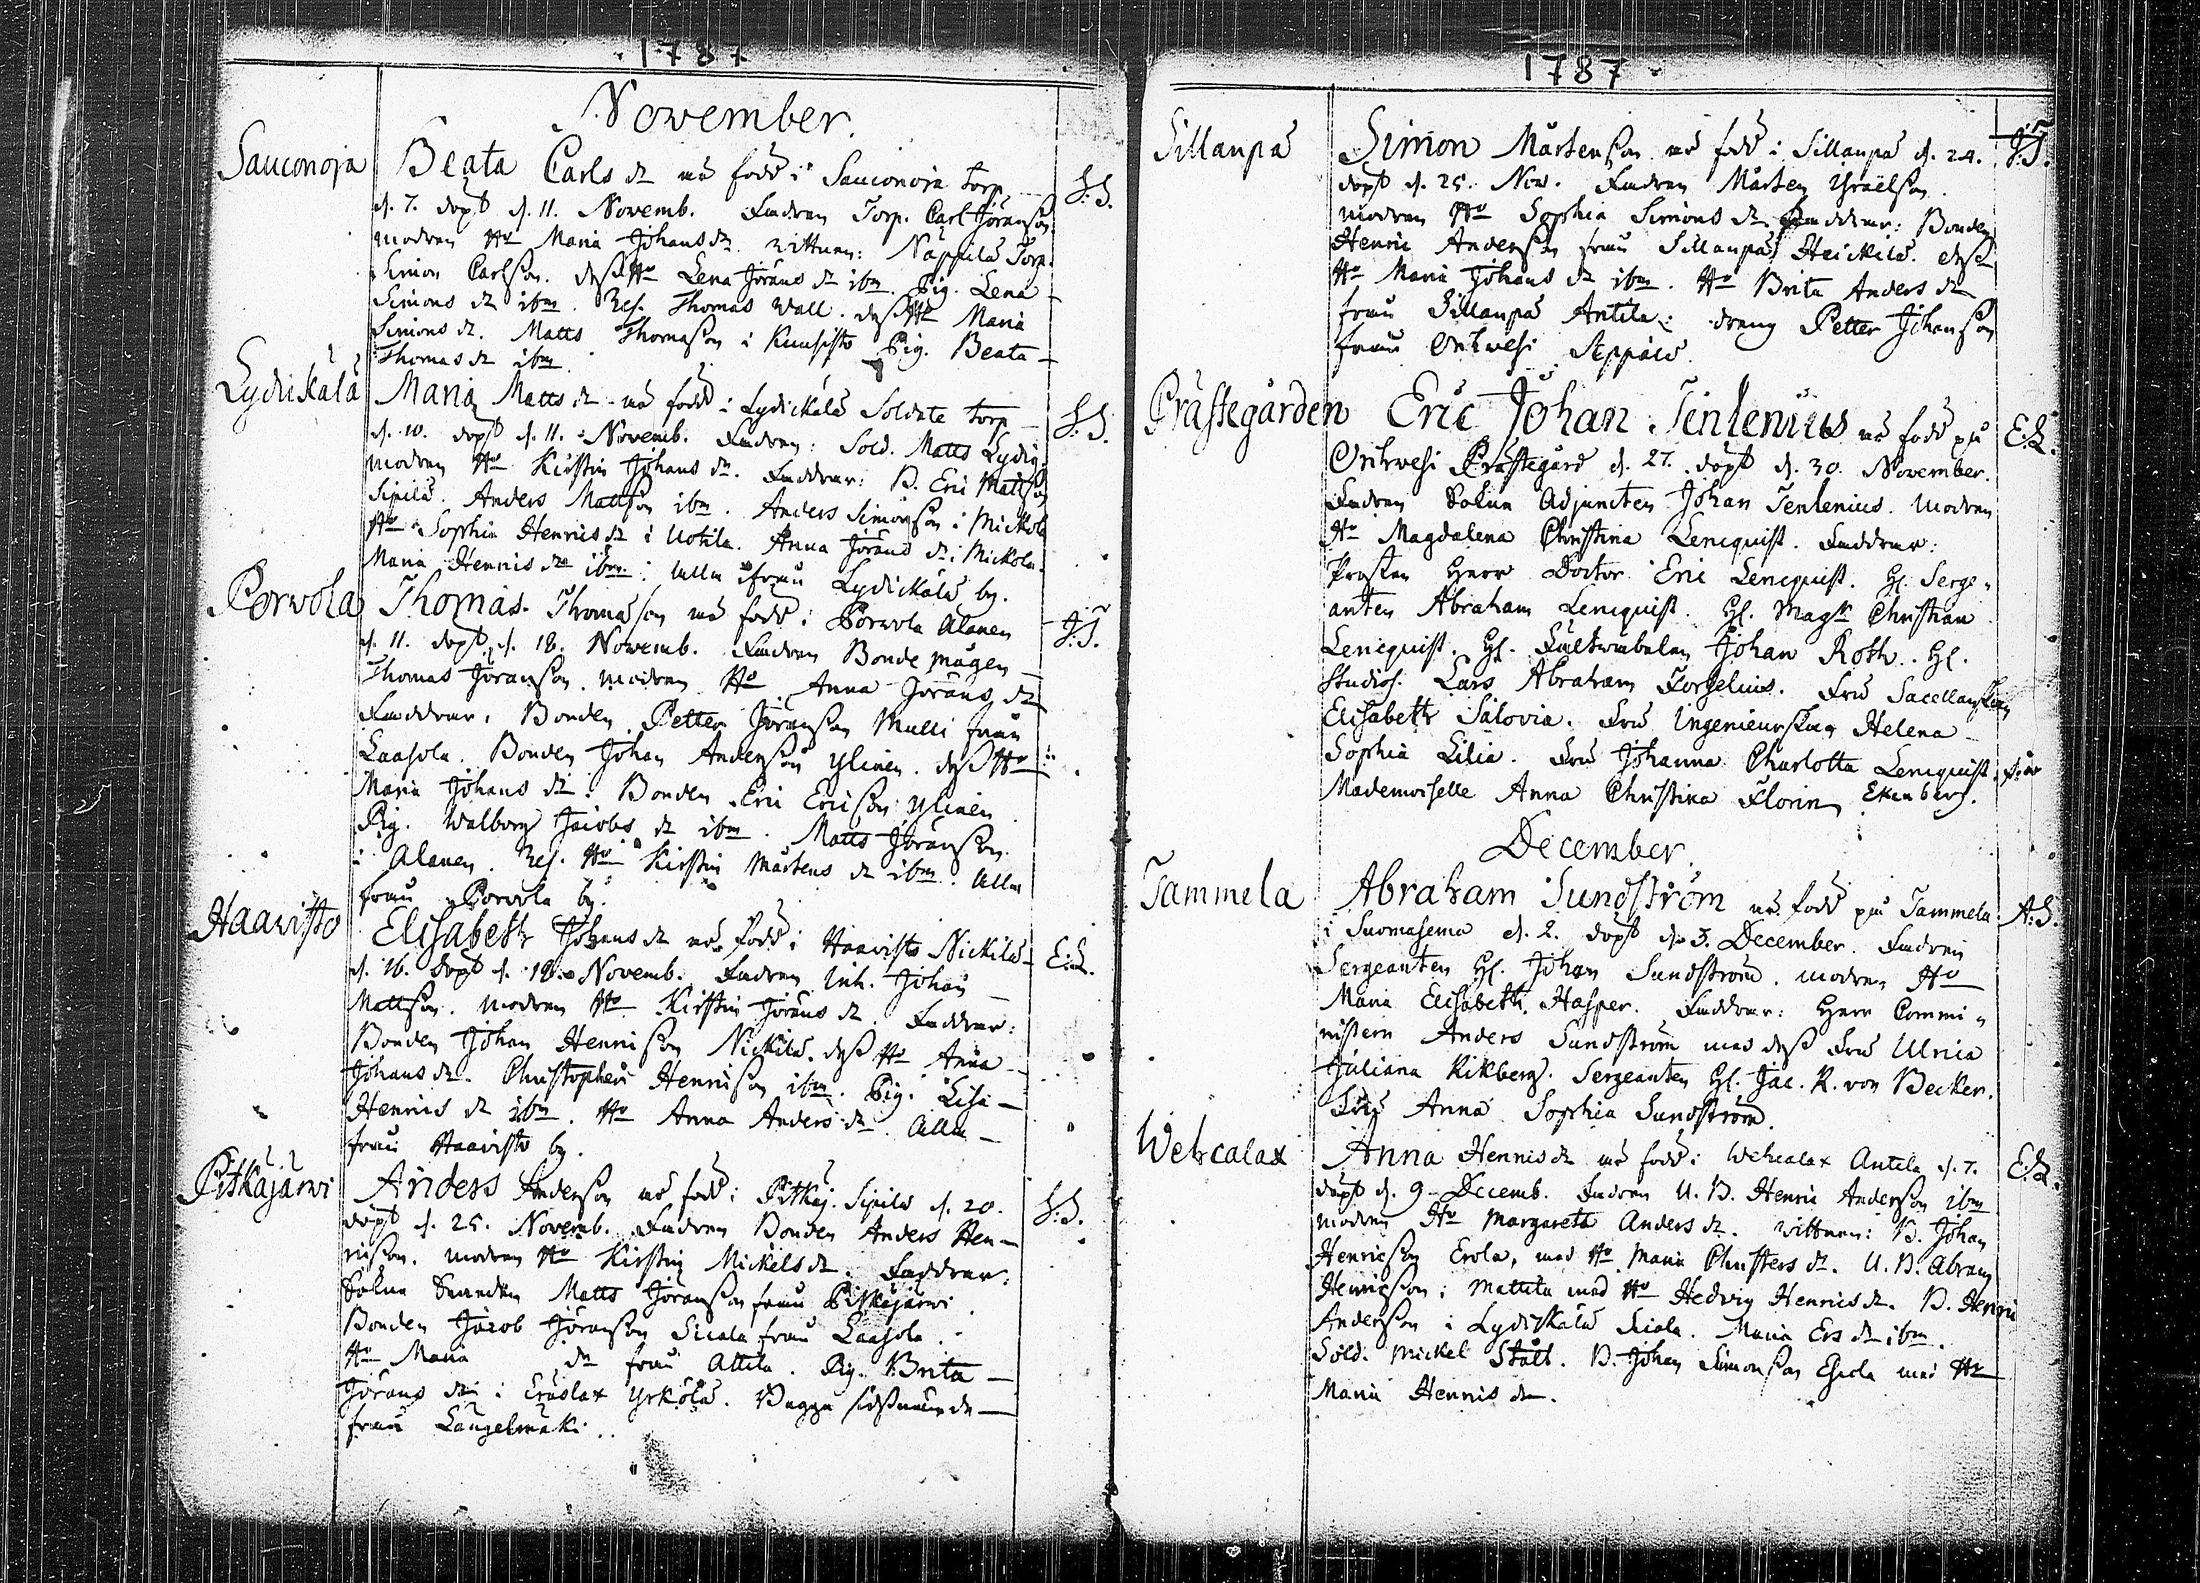 1787
November.
Sauconoja
Beata Carls dr är född i Sauconoja torp
S:S.
d. 7. döpt d. 11. Novemb. Fadren Torp. Carl Jöransson
modren Ho Maria Johans dr. vittnen: Näppilä Torp.
Simon Carlson. dess Ho Lena Jörans dr ibm. Pig. Lena
Simons dr ibm. Ref. Thomas Wall. dess Ho Maria
Simons dr. Matts Thomasson i Kuusisto Pig. Beata
Thomas dr ibm.
Lydickälä
Maria Matts dr är född i Lydickälä Soldate torp
S:S.
d. 10. döpt d. 11. Novemb. Fadren: Sold. Matts Lydig.
modren Ho Kirstin Johans dr. Faddrar: B. Eric Mattson
Sipilä. Anders Mattson ibm. Anders Simonson i Mickola
Ho Sophia Henrics dr i Uotila. Anna Jörans dr i Mickola.
Maria Henrics dr ibm. alla ifrån Lydickälä by.
Porvola
Thomas Thomasson är född i Porvola Alanen
J:T.
d. 11. döpt d. 18. Novemb. Fadren Bonde mågen
Thomas Jöranson. modren Ho Anna Jörans dr
Faddrar: Bonden Petter Jöranson Mulli från
Laasola. Bonden Johan Anderson Ylinen. dess Ho
Maria Johans dr. Bonden Eric Ericson Ylinen
Pig. Walborg Jacobs dr ibm. Matts Jöranson
i Alanen. Ref. Ho Kirstin Mårtens dr ibm. alla
från Porvola by.
Haavisto
Elisabeth Johans dr är född i Haavisto Nickilä
E:L.
d. 16. döpt d. 18. Novemb. Fadren Inh. Johan
Mattson. modren Ho Kirstin Jörans dr. Faddrar:
Bonden Johan Henricson Nickilä. dess Ho Anna
Johans dr. Christopher Henricson ibm. Pig. Lisa
Henrics dr ibm. Ho Anna Anders dr alla
från Haavisto by.
Pitkäjärwi
Anders Anderson är född i Pitkäj. Sipilä d. 20.
S:S.
döpt d. 25. Novemb. Fadren Bonden Anders Hen-
ricson. modren Ho Kirstin Mickels dr. Faddrar:
Sokne Matts Jöranson från Pitkäjärwi.
Bonden Jacob Jöranson Sicala från Laasola.
Ho Maria dr från Attila. Pig. Brita
Jörans dr i Eräslax Yrkölä.
från Längelmäki.
1787
Sillanpä
Simon Mårtenson är född i Sillanpä d. 24.
J:T.
döpt d. 25. Nov. Fadren Mårten Ysraëlson.
modren Ho Sophia Simons dr Faddrar: Bonden
Henric Anderson från Sillanpä Heickilä. dess
Ho Maria Johans dr ibm. Ho Brita Anders dr
från Sillanpä Antila. dräng Petter Johanson
från Orihvesi Seppälä.
Prästegården
Eric Johan Tenlenius är född på
E:L.
Orihvesi Prästegård d. 27. döpt d. 30. November.
Fadren Sokne Adjuncten Johan Tenlenius. modren
Ho Magdalena Christina Lencquist. Faddrar:
Prosten Herr Doctor Eric Lencquist. Hr. Serge-
anten Abraham Lencquist. Hr. Magr Christian
Lencquist. Hr. Johan Roth. Hr.
Studios. Lars Abraham Forselius. Fru Sacellanskan
Elisabeth Salovia. Fru Ingenieurskan Helena
Sophia Lilia. Fru Johanna Charlotta Lencquist.
Mademoiselle Anna Christina Florin, Ekenberg.
December.
Tammela
Abraham Sundström är född på Tammela
A:S.
i Suomasema d. 2. döpt d. 3. December. Fadren
Sergeanten Hr. Johan Sundström. modren Ho
Maria Elisabeth Hasper. Faddrar: Herr Commi-
nistern Anders Sundström med dess Fru Ulrica
Juliana Kikberg. Sergeanten Hr. Jac. R. von Becker.
Fru Anna Sophia Sundström.
Wehcalax
Anna Henrics dr är född i Wehcalax Antila d. 7.
E:L.
döpt d. 9 Decemb. Fadren U. B. Henric Anderson ibm
modren Ho Margareta Anders dr. vittnen: B. Johan
Henricson Erola, med Ho Maria Christers dr. U. B. Abram
Henricson i Mattila med Ho Hedvig Henrics dr. B. Henric
Anderson i Lydickälä Sicala. Maria Ers dr ibm.
Sold. Mickel Stått. B. Johan Simonson Eskola med Ho
Maria Henrics dr.